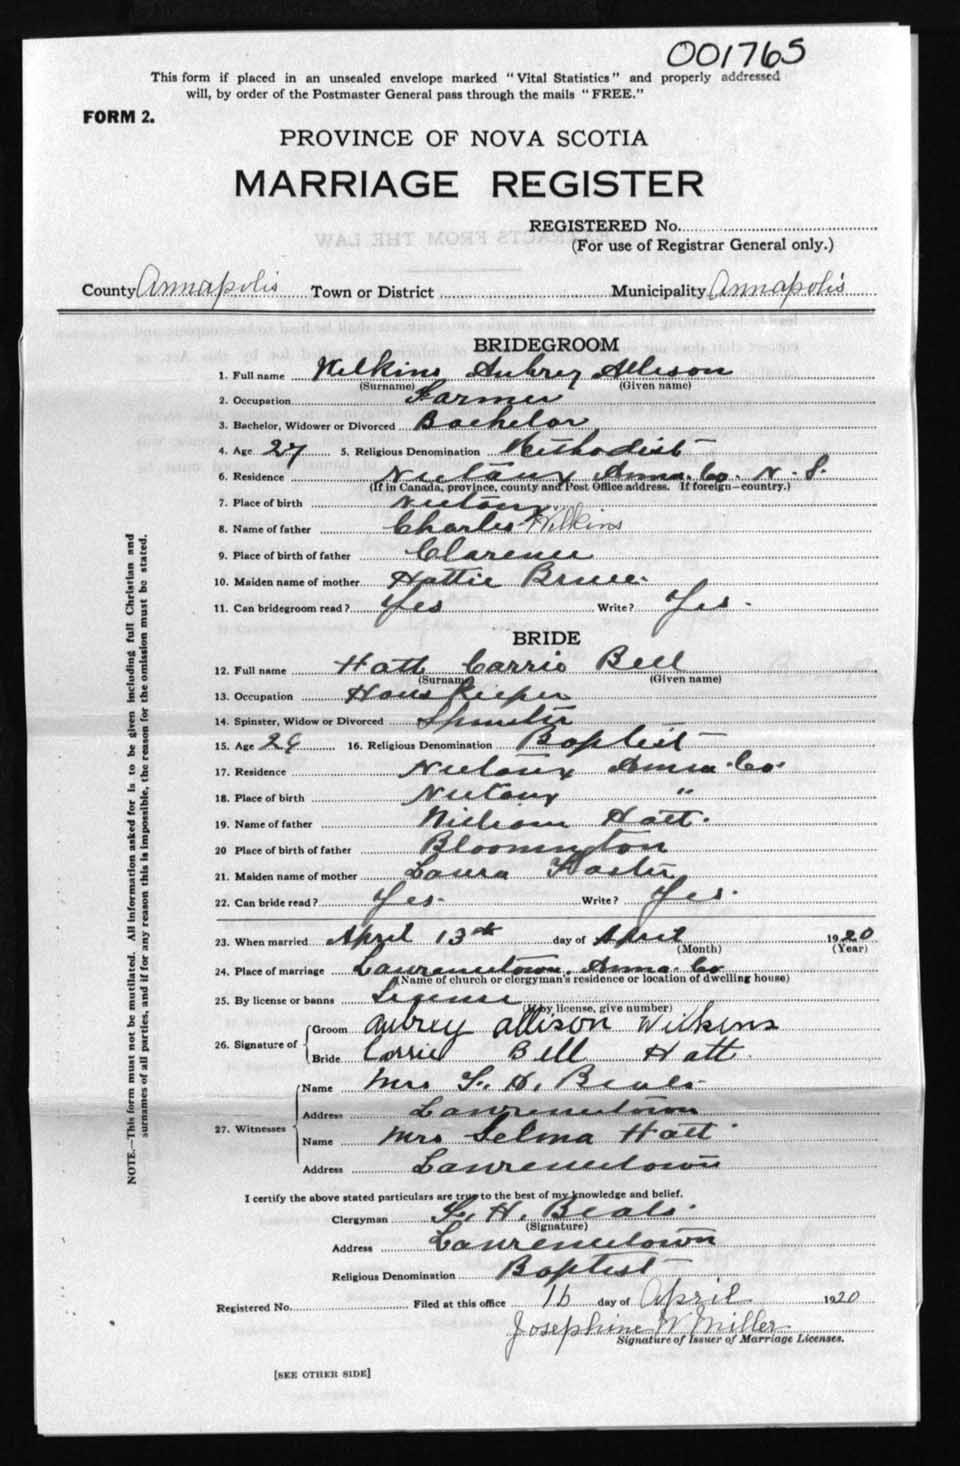 001765
This form if placed in an unsealed envelope marked "Vital Statistics" and properly addressed
will, by order of the Postmaster General pass through the mails "FREE."
FORM 2.
PROVINCE OF NOVA SCOTIA
MARRIAGE REGISTER
REGISTERED No.
(For use of Registrar General only.)
EXTRACTS FROM THE LAW
County Annapolis Town or District Municipality Annapolis
BRIDEGROOM
1. Full name Wilkins Aubrey Allison
(Surname) (Given name)
2. Occupation Farmer
3. Bachelor, Widower or Divorced Bachelor
4. Age 27 5. Religious Denomination Methodist
6. Residence Nictaux Anna. Co. N. S.
(If in Canada, province, county and Post Office address. If foreign—country.)
7. Place of birth Nictaux
8. Name of father Charles Wilkins
9. Place of birth of father Clarence
10. Maiden name of mother Hattie Bruce.
11. Can bridegroom read? Yes Write? Yes.
BRIDE
12. Full name Hatt Carrie Bell
(Surname) (Given name)
13. Occupation Hous Keeper
14. Spinster, Widow or Divorced Spinster
15. Age 16. Religious Denomination Baptist
17. Residence Nictaux Anna. Co.
18. Place of birth Nictaux "
19. Name of father William Hatt.
20 Place of birth of father Bloomington
21. Maiden name of mother Laura Foster
22. Can bride read? Yes. Write? Yes.
23. When married April 13th day of April 1920
(Month) (Year)
24. Place of marriage Lawrencetown. Anna. Co
(Name of church or clergyman's residence or location of dwelling house)
25. By license or banns License
(If by license, give number)
26. Signature of Groom Aubrey Allison Wilkins
Bride Carrie Bell Hatt.
27. Witnesses Name Mrs S. H. Beals.
Address Lawrencetown
Name Mrs Selma Hatt
Address Lawrencetown
I certify the above stated particulars are true to the best of my knowledge and belief.
Clergyman S. H. Beals.
(Signature)
Address Lawrencetown
Religious Denomination Baptist
Registered No. Filed at this office 16 day of April 1920
Josephine W Miller
Signature of Issuer of Marriage Licenses.
[SEE OTHER SIDE]
NOTE.—This form must not be mutilated. All information asked for is to be given including full Christian and
surnames of all parties, and if for any reason this is impossible, the reason for the omission must be stated.